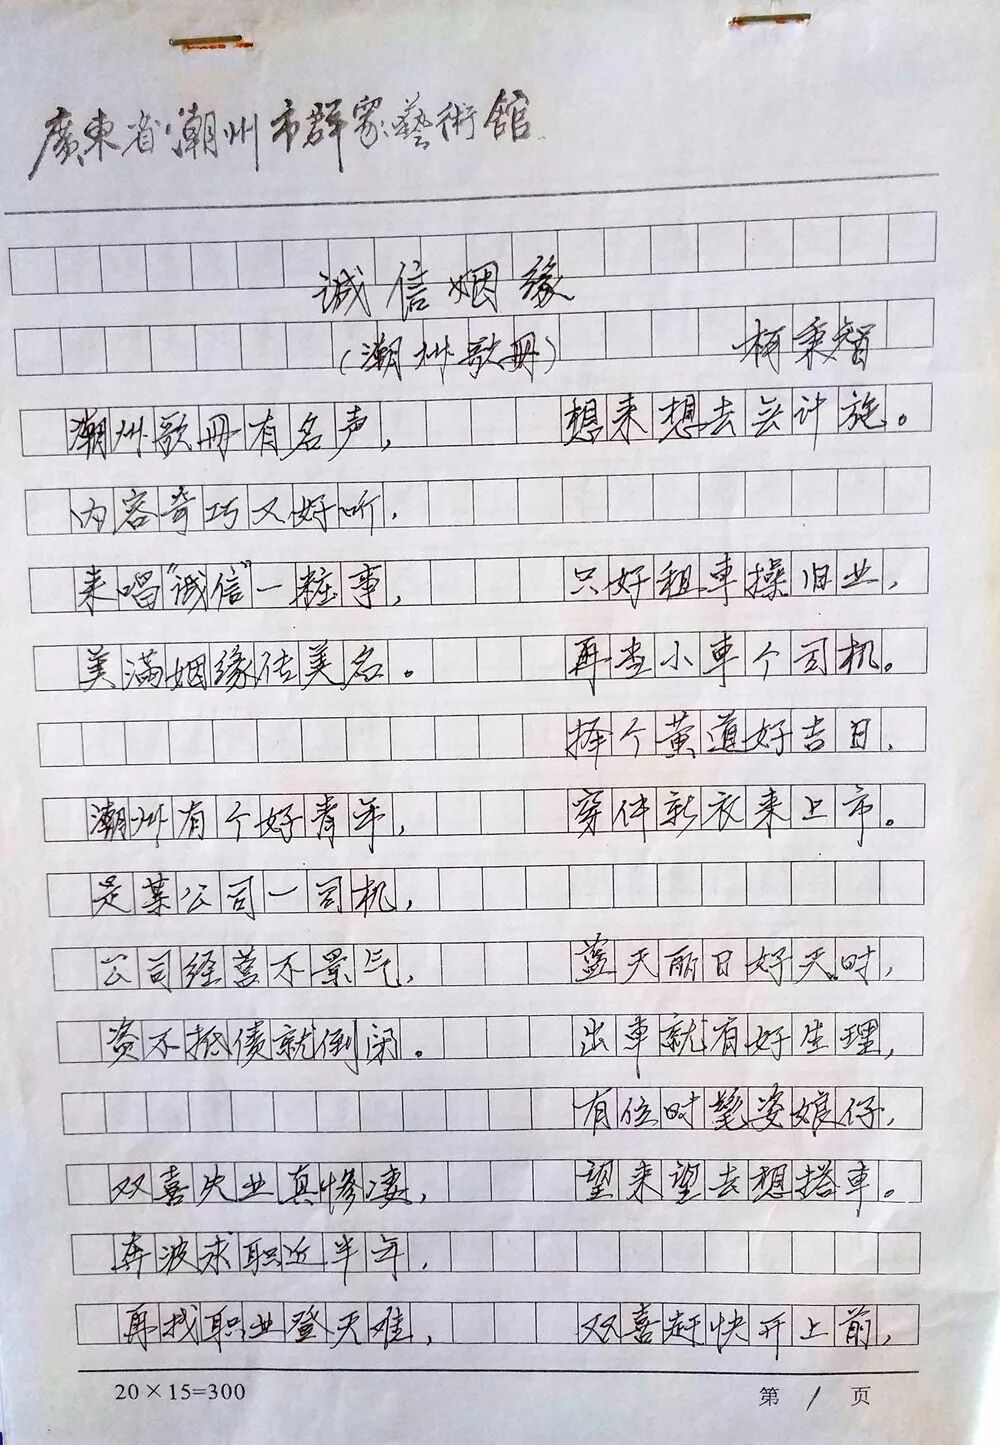 廣東省潮州市群众藝術館
诚信姻缘
(潮州歌册)
柯秉智
潮州歌册有名声,
内容奇巧又好听,
来唱"诚信"一粧事,
美满姻缘传美名。
潮州有个好青年,
是某公司一司机,
公司经营不景气,
资不抵债就倒闭。
双喜失业真惨凄,
奔波求职近半年,
再找职业登天难,
想来想去计施。
只好租车操旧业,
再当小车个司机。
择个黄道好吉日,
穿件新衣来上市。
蓝天丽日好天时,
出车就有好生理,
有位时髦姿娘仔,
望来望去想搭车。
双喜赶快开上前,
20×15=300
第 1 页